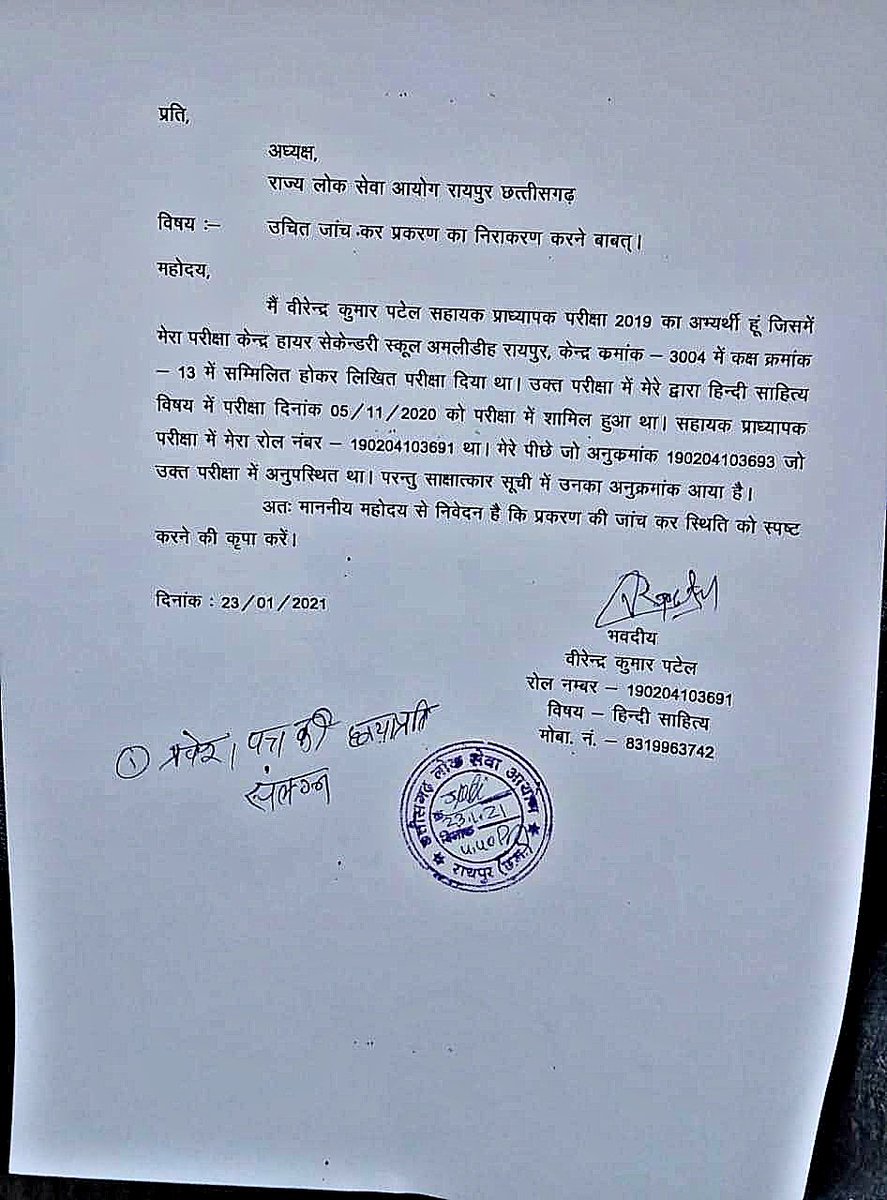 प्रति,
अध्यक्ष,
राज्य लोक सेवा आयोग रायपुर छत्तीसगढ़
विषय :– उचित जांच कर प्रकरण का निराकरण करने बाबत्।
महोदय,
मैं वीरेन्द्र कुमार पटेल सहायक प्राध्यापक परीक्षा 2019 का अभ्यर्थी हूं जिसमें
मेरा परीक्षा केन्द्र हायर सेकेन्डरी स्कूल अमलीडीह रायपुर, केन्द्र कमांक – 3004 में कक्ष क्रमांक
– 13 में सम्मिलित होकर लिखित परीक्षा दिया था। उक्त परीक्षा में मेरे द्वारा हिन्दी साहित्य
विषय में परीक्षा दिनांक 05/11/2020 को परीक्षा में शामिल हुआ था। सहायक प्राध्यापक
परीक्षा में मेरा रोल नंबर – 190204103691 था। मेरे पीछे जो अनुकमांक 190204103693 जो
उक्त परीक्षा में अनुपस्थित था। परन्तु साक्षात्कार सूची में उनका अनुक्रमांक आया है।
अतः माननीय महोदय से निवेदन है कि प्रकरण की जांच कर स्थिति को स्पष्ट
करने की कृपा करें।
दिनांक : 23/01/2021
भवदीय
वीरेन्द्र कुमार पटेल
रोल नम्बर – 190204103691
विषय – हिन्दी साहित्य
मोबा. नं. – 8319963742
① प्रवेश पत्र की छायाप्रति
संलग्न
छत्तीसगढ़ लोक सेवा आयोग
23.1.21
दिनांक
रायपुर (छ.ग.)